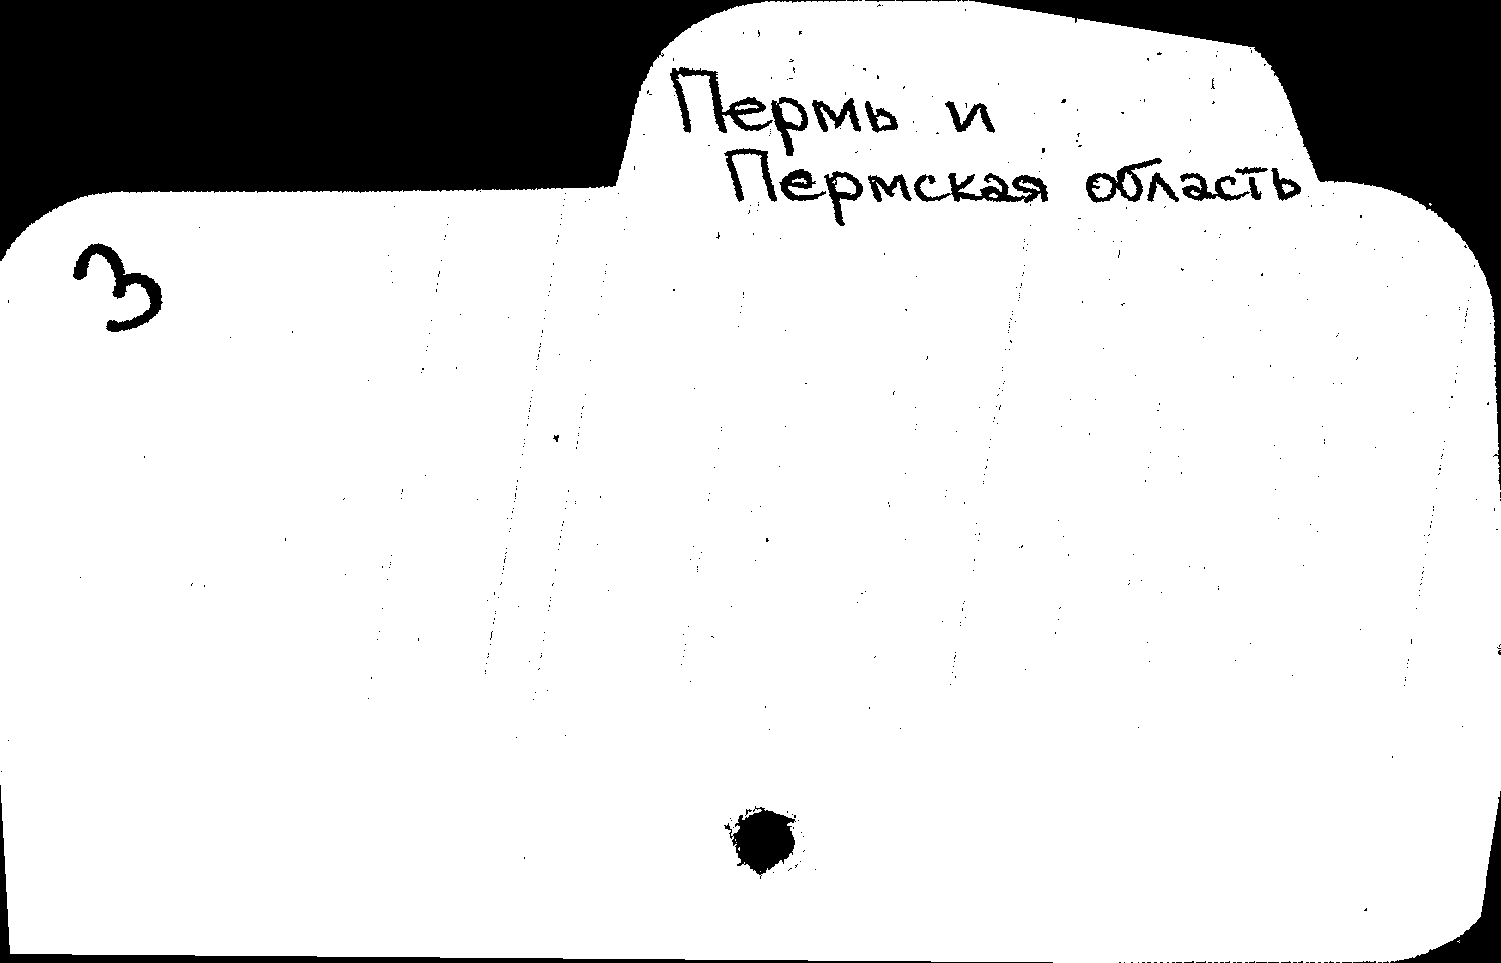 Пермь и
Пермская область
3